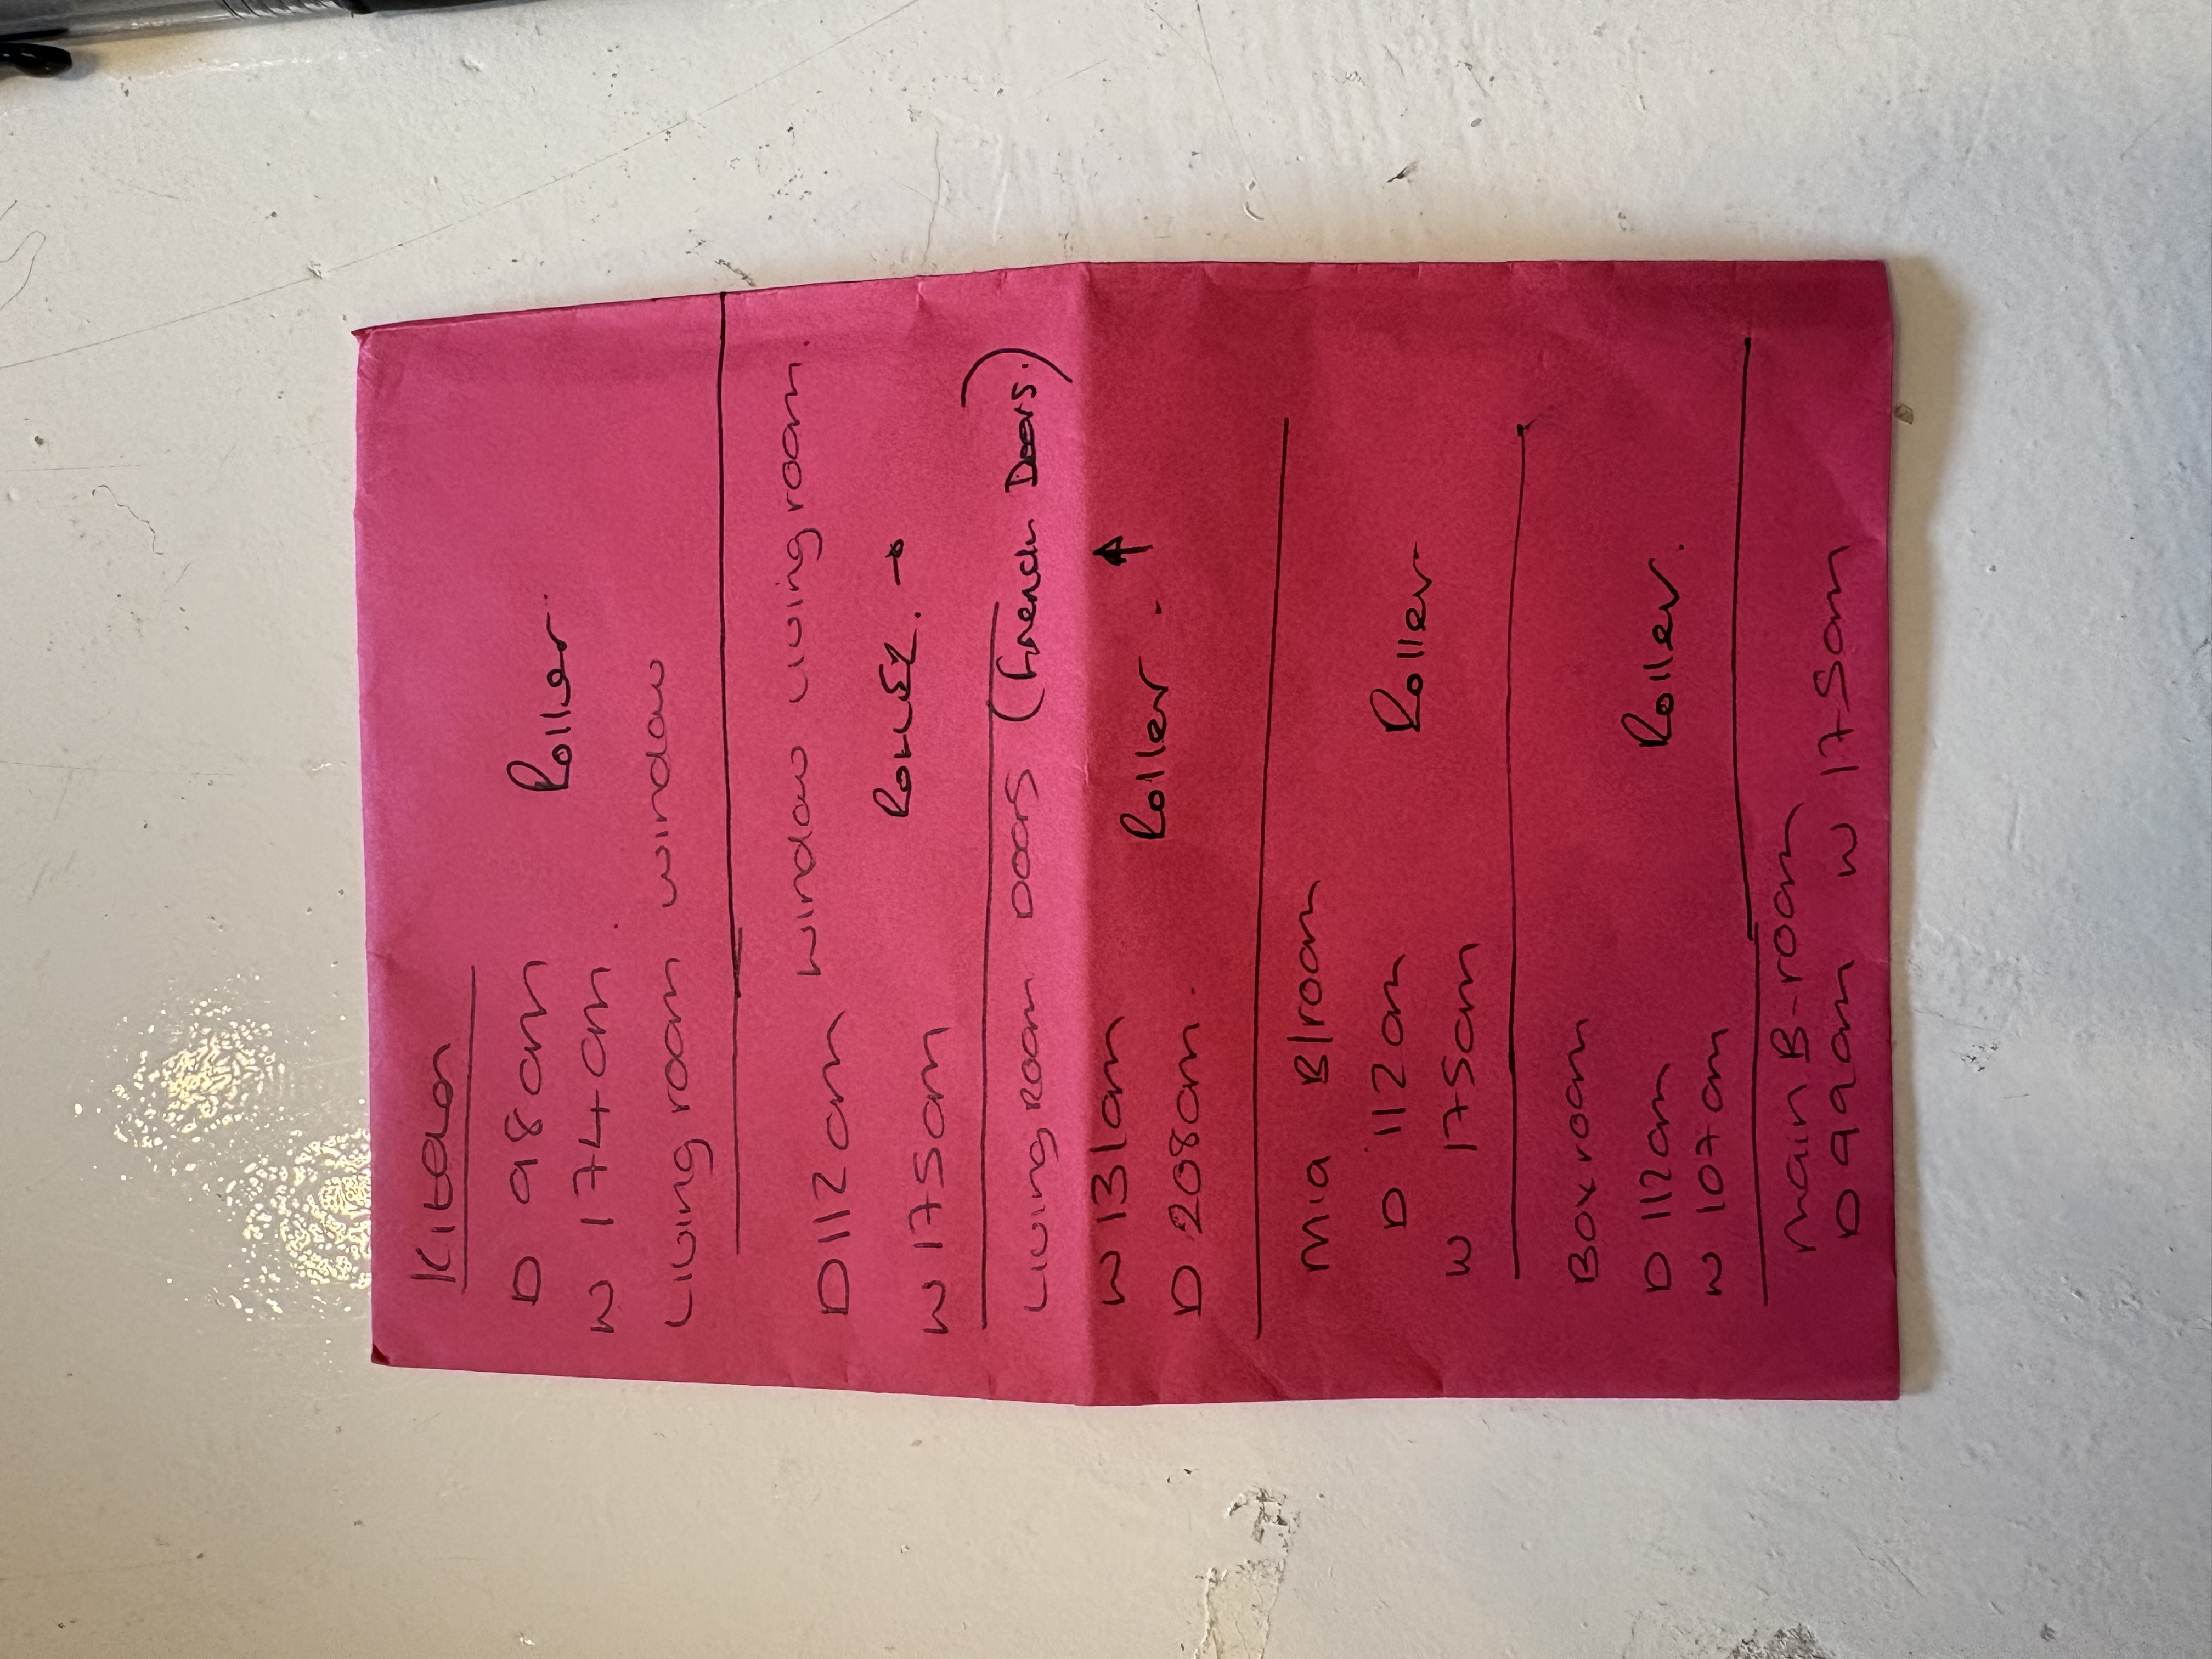 Kitchen
D 98cm Roller
W 174cm
Living room window
D112cm window living room.
W 175cm Roller. →
Living Room Doors (French Doors.)
W 131cm Roller. ↑
D 208cm.
Mia B/room
D 112cm Roller
W 175cm
Box room
D 112cm
W 107cm Roller.
main B-room
D 99cm W 175cm